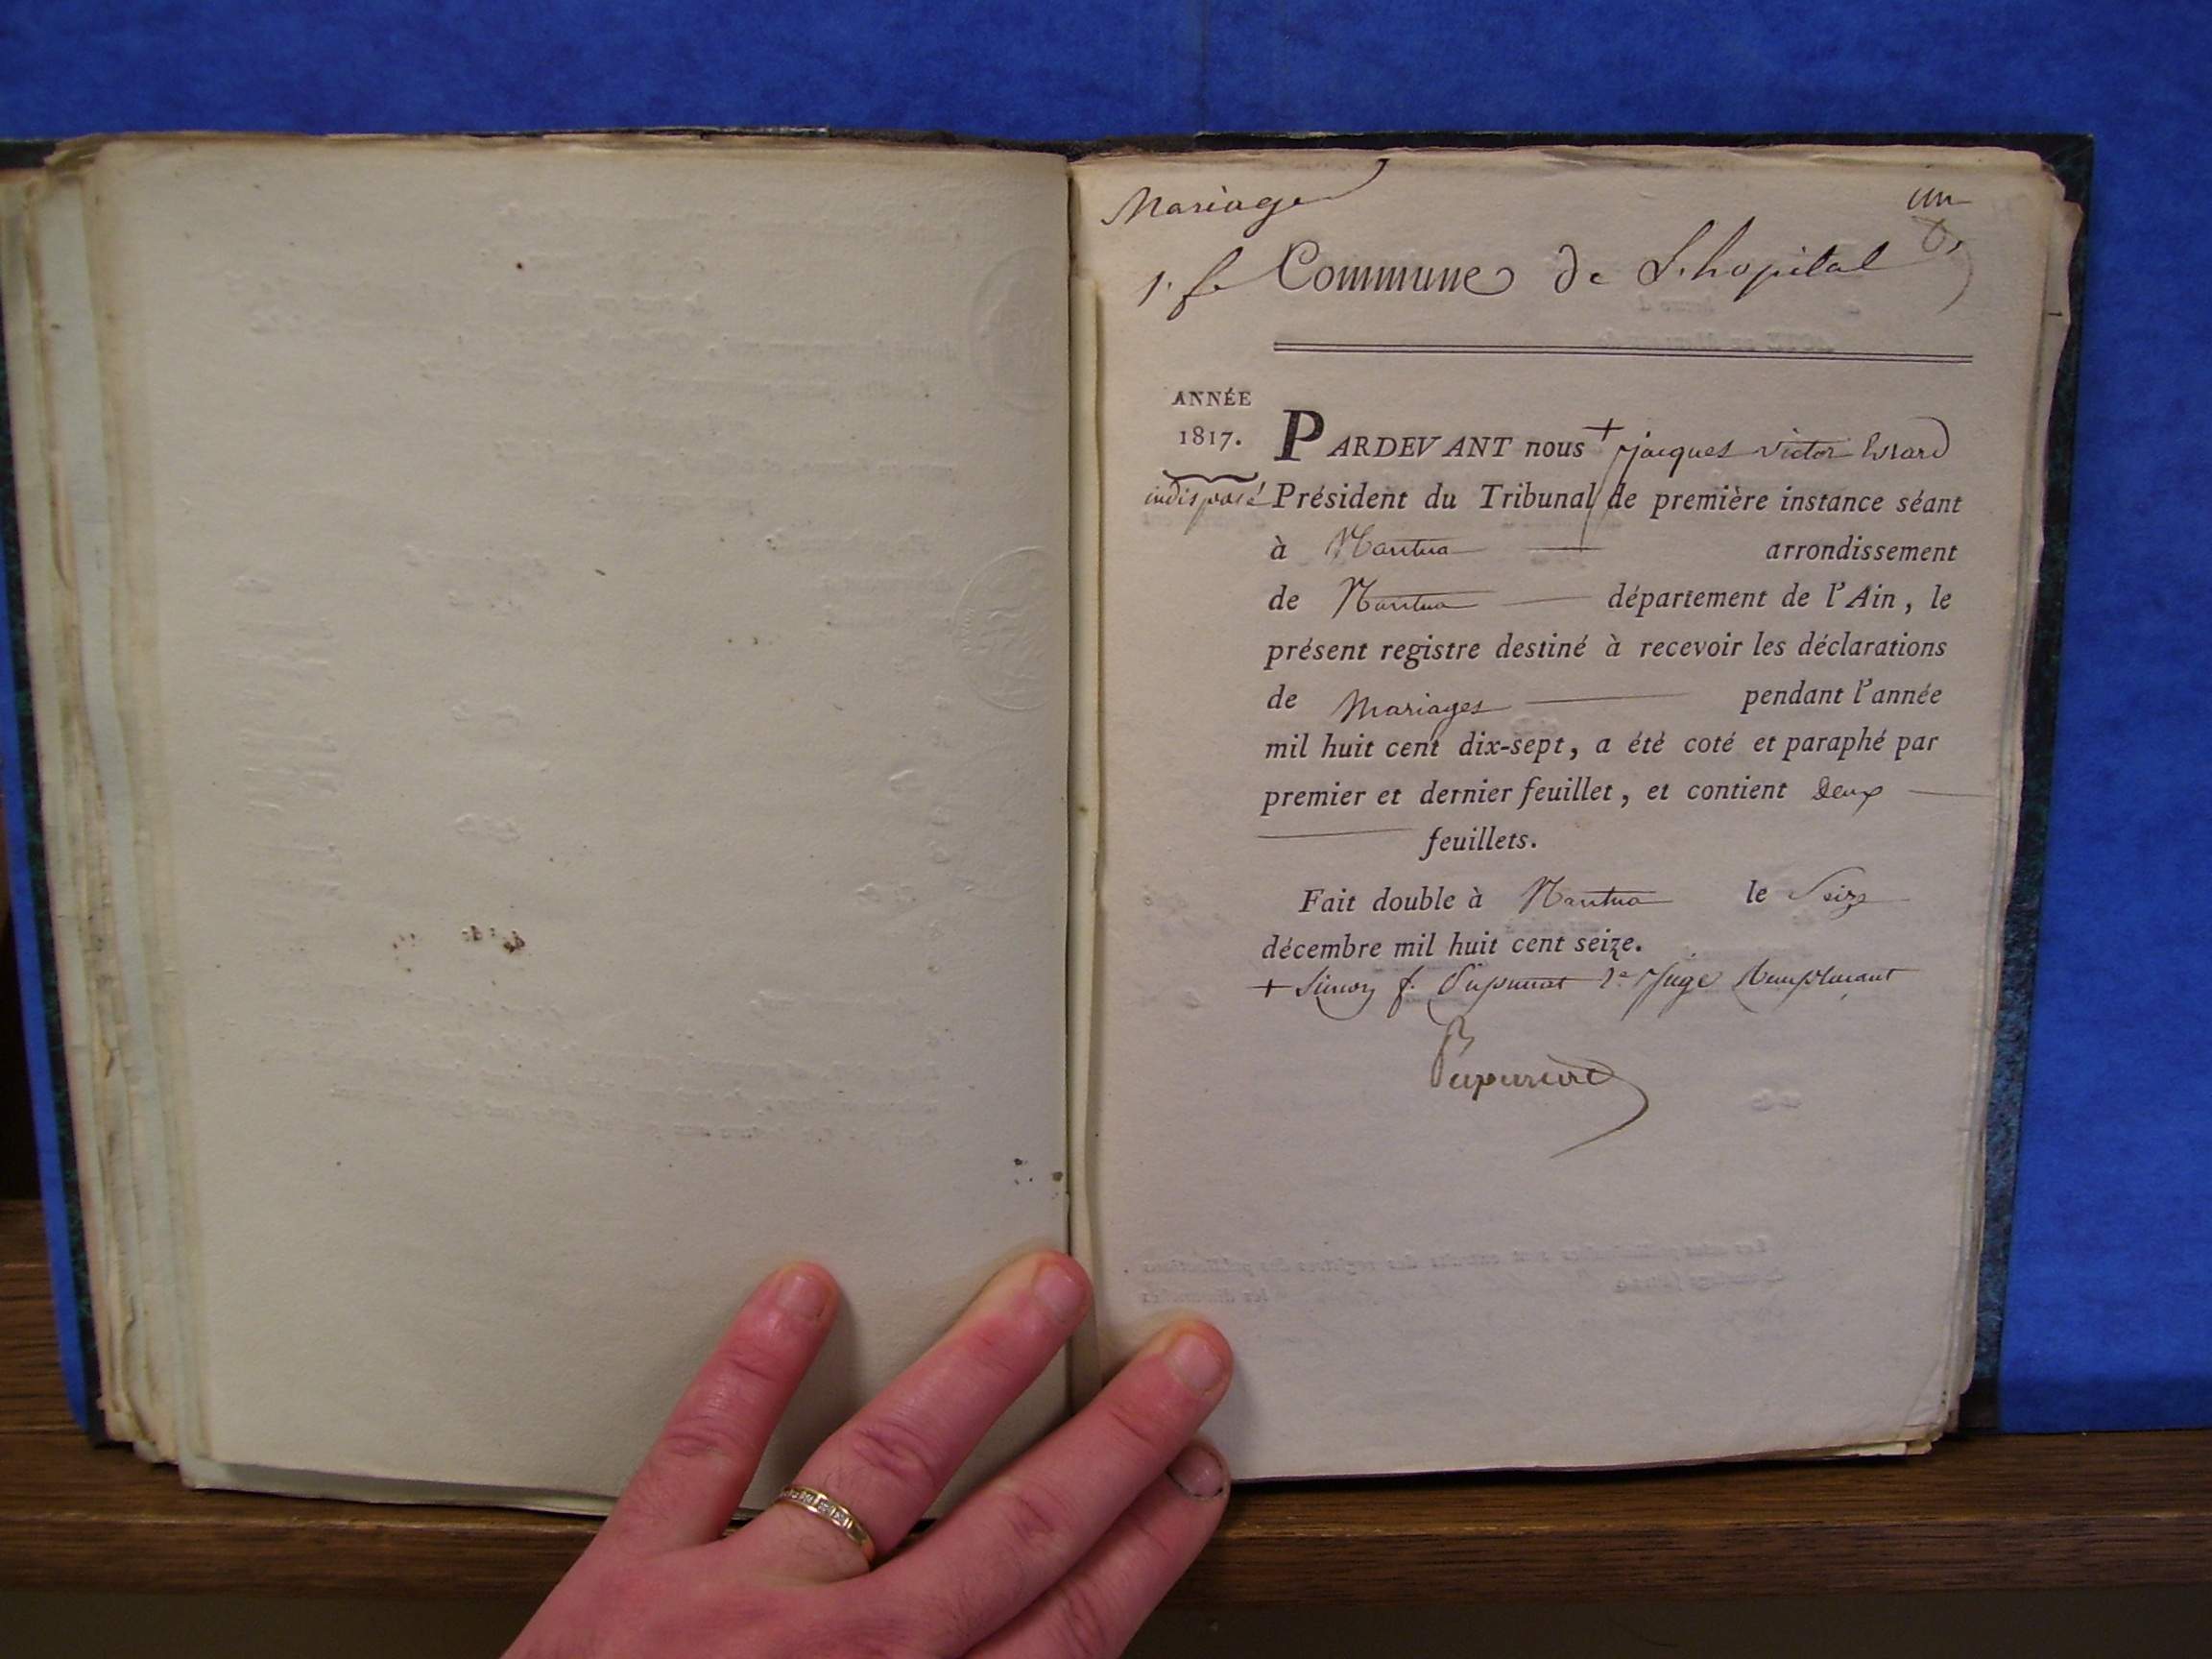 Mariage
un
1. f.
Commune de L'hopital
ANNÉE
1817.
PARDEVANT nous + jacques victor
indisposé Président du Tribunal de première instance séant
à Nantua arrondissement
de Nantua département de l'Ain, le
présent registre destiné à recevoir les déclarations
de Mariages pendant l'année
mil huit cent dix-sept, a été coté et paraphé par
premier et dernier feuillet, et contient deux
feuillets.
Fait double à Nantua le Seize
décembre mil huit cent seize.
+ Simon f. 2e Juge Remplacant